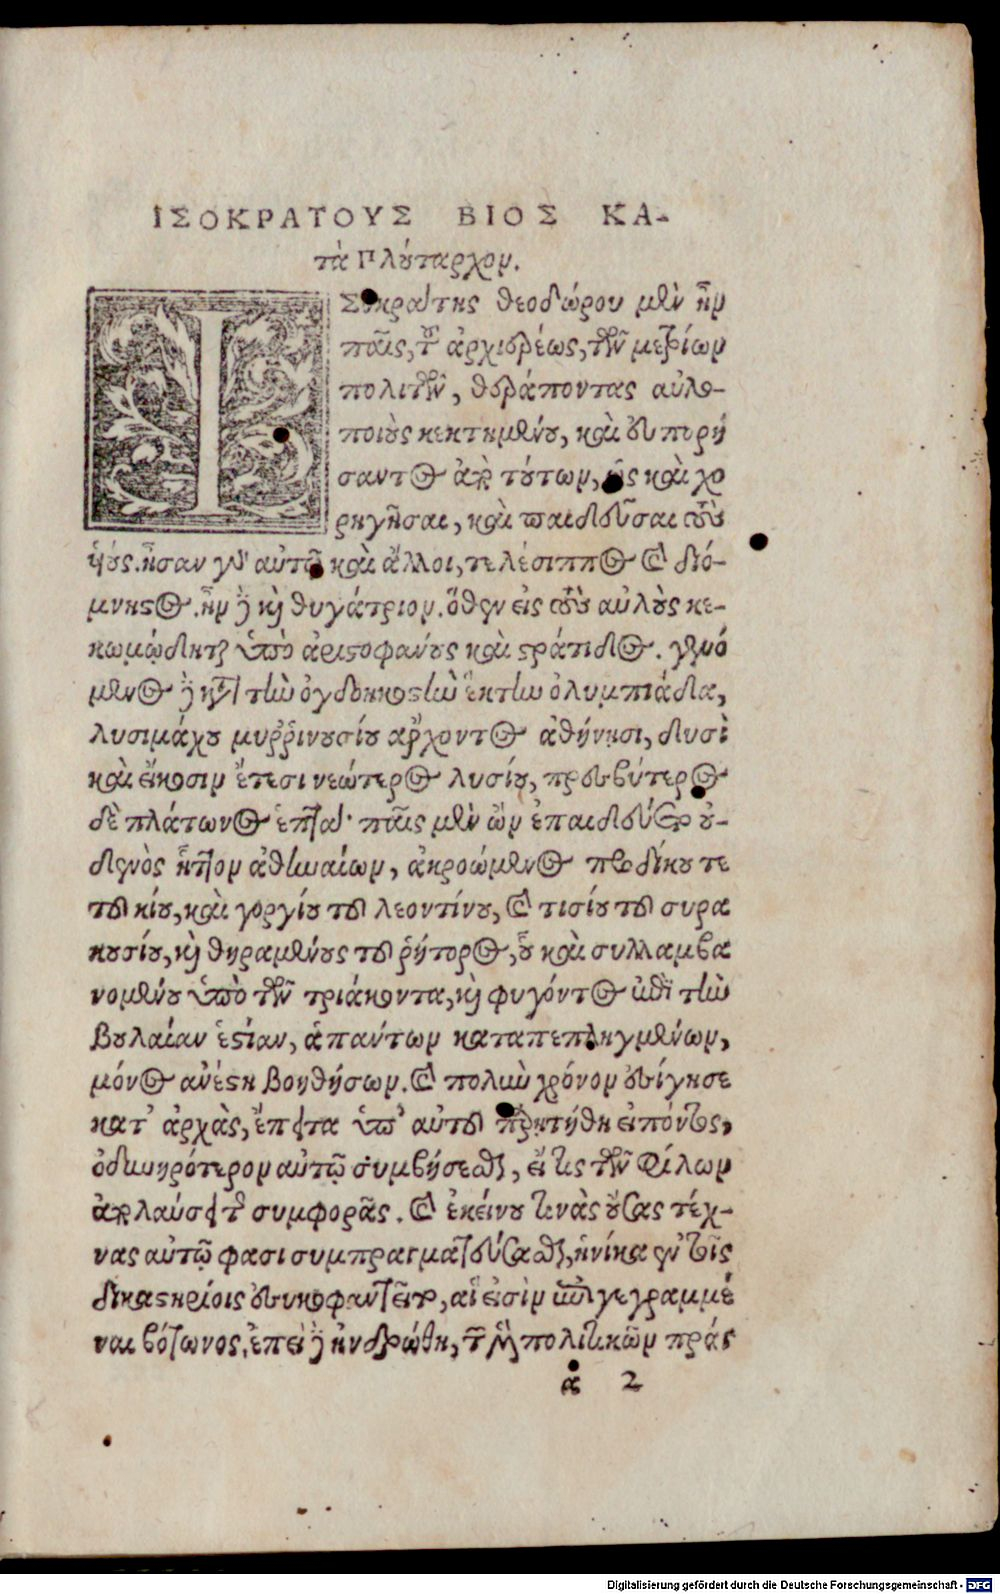 ΙΣΟΚΡΑΤΟΥΣ ΒΙΟΣ ΚΑ-
τὰ Πλύταρχον.
ΙΣοκράτης θεοδώρου μὲν ἦν
παῖς, τοῦ ἀρχιερέως, τῶν μετρίων
πολιτῶν, θεράποντας αὐλο-
ποιοὺς κεκτημένου, καὶ εὐπορή
σαντος ἀπὸ τούτων, ὡς καὶ χο
ρηγῆσαι, καὶ παιδεῦσαι τοὺς
υἱούς. ἦσαν γὰρ αὐτῷ καὶ ἄλλοι, τελέσιππος καὶ διό-
μνηστος. ἦν δὲ καὶ θυγάτριον. ὅθεν εἰς τοὺς αὐλοὺς κε-
κωμῴδηται ὑπὸ ἀριστοφάνους καὶ στράτιδος. γενό
μενος δὲ κατὰ τὴν ὀγδοηκοστὴν ἕκτην ὀλυμπιάδα,
λυσιμάχου μυῤῥινουσίου ἄρχοντος ἀθήνησι, δυσὶ
καὶ εἴκοσιν ἔτεσι νεώτερος λυσίου, πρεσβύτερος
δὲ πλάτωνος ἑπτά· παῖς μὲν ὢν ἐπαιδεύετο οὐ-
δενὸς ἧττον ἀθηναίων, ἀκροώμενος προδίκου τε
τοῦ κίου, καὶ γοργίου τοῦ λεοντίνου, καὶ τισίου τοῦ συρα
κουσίου, καὶ θηραμένους τοῦ ῥήτορος, οὗ καὶ συλλαμβα
νομένου ὑπὸ τῶν τριάκοντα, καὶ φυγόντος ἐπὶ τὴν
βουλαίαν ἑστίαν, ἁπάντων καταπεπληγμένων,
μόνος ἀνέστη βοηθήσων. καὶ πολὺν χρόνον ἐσίγησε
κατ' ἀρχὰς, ἔπειτα ὑπ' αὐτοῦ παρῃτήθη εἰπόντος,
ὀδυνηρότερον αὐτῷ συμβήσεσθαι, εἴ τις τῶν φίλων
ἀπολαύσει τῆς συμφορᾶς. καὶ ἐκείνου τινὰς οὔσας τέχ-
νας αὐτῷ φασι συμπραγματεύσασθαι, ἡνίκα ἐν τοῖς
δικαστηρίοις ἐσυκοφαντεῖτο, αἵ εἰσιν ἐπιγεγραμμέ
ναι βότωνος. ἐπεὶ δὲ ἠνδρώθη, τῶν μὲν πολιτικῶν πράς
α 2
Digitalisierung gefördert durch die Deutsche Forschungsgemeinschaft - DFG